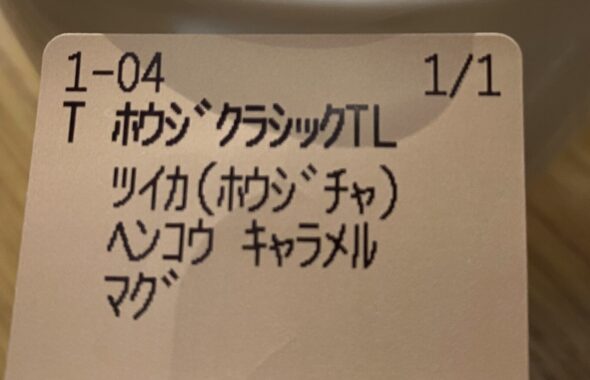 1-04 1/1
T ﾎｳｼﾞｸﾗｼｯｸTL
ﾂｲｶ(ﾎｳｼﾞﾁｬ)
ﾍﾝｺｳ ｷｬﾗﾒﾙ
ﾏｸﾞ